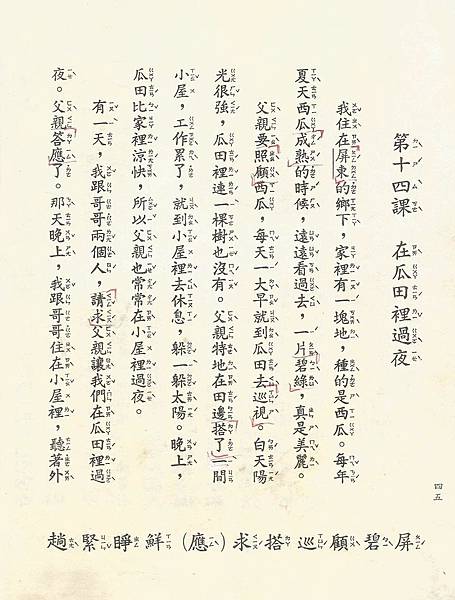 第十四課　在瓜田裡過夜
我住在屏東的鄉下，家裡有一塊地，種的是西瓜。每年
夏天西瓜成熟的時候，遠遠看過去，一片碧綠，真是美麗。
父親要照顧西瓜，每天一大早就到瓜田去巡視。白天陽
光很強，瓜田裡連一棵樹也沒有。父親特地在田邊搭了一間
小屋，工作累了，就到小屋裡去休息，躲一躲太陽。晚上，
瓜田比家裡涼快，所以父親也常常在小屋裡過夜。
有一天，我跟哥哥兩個人，請求父親讓我們在瓜田裡過
夜。父親答應了。那天晚上，我跟哥哥住在小屋裡，聽著外
四五
屏碧顧巡搭求（應）鮮睜緊趟